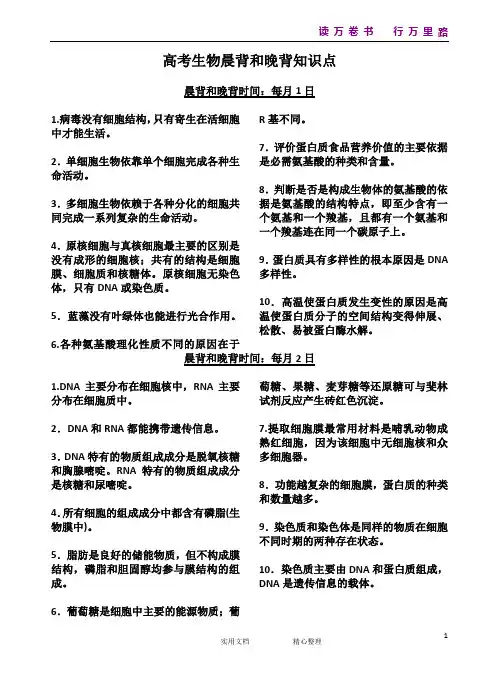 读 万 卷 书 行 万 里 路
高考生物晨背和晚背知识点
晨背和晚背时间：每月 1 日
1.病毒没有细胞结构，只有寄生在活细胞
中才能生活。
2．单细胞生物依靠单个细胞完成各种生
命活动。
3．多细胞生物依赖于各种分化的细胞共
同完成一系列复杂的生命活动。
4．原核细胞与真核细胞最主要的区别是
没有成形的细胞核；共有的结构是细胞
膜、细胞质和核糖体。原核细胞无染色
体，只有 DNA 或染色质。
5．蓝藻没有叶绿体也能进行光合作用。
6.各种氨基酸理化性质不同的原因在于
R 基不同。
7．评价蛋白质食品营养价值的主要依据
是必需氨基酸的种类和含量。
8．判断是否是构成生物体的氨基酸的依
据是氨基酸的结构特点，即至少含有一
个氨基和一个羧基，且都有一个氨基和
一个羧基连在同一个碳原子上。
9．蛋白质具有多样性的根本原因是 DNA
多样性。
10．高温使蛋白质发生变性的原因是高
温使蛋白质分子的空间结构变得伸展、
松散、易被蛋白酶水解。
晨背和晚背时间：每月 2 日
1.DNA 主要分布在细胞核中，RNA 主要
分布在细胞质中。
2．DNA 和 RNA 都能携带遗传信息。
3．DNA 特有的物质组成成分是脱氧核糖
和胸腺嘧啶。RNA 特有的物质组成成分
是核糖和尿嘧啶。
4.所有细胞的组成成分中都含有磷脂(生
物膜中)。
5．脂肪是良好的储能物质，但不构成膜
结构，磷脂和胆固醇均参与膜结构的组
成。
6．葡萄糖是细胞中主要的能源物质；葡
萄糖、果糖、麦芽糖等还原糖可与斐林
试剂反应产生砖红色沉淀。
7.提取细胞膜最常用材料是哺乳动物成
熟红细胞，因为该细胞中无细胞核和众
多细胞器。
8．功能越复杂的细胞膜，蛋白质的种类
和数量越多。
9．染色质和染色体是同样的物质在细胞
不同时期的两种存在状态。
10．染色质主要由 DNA 和蛋白质组成，
DNA 是遗传信息的载体。
1
实用文档 精心整理